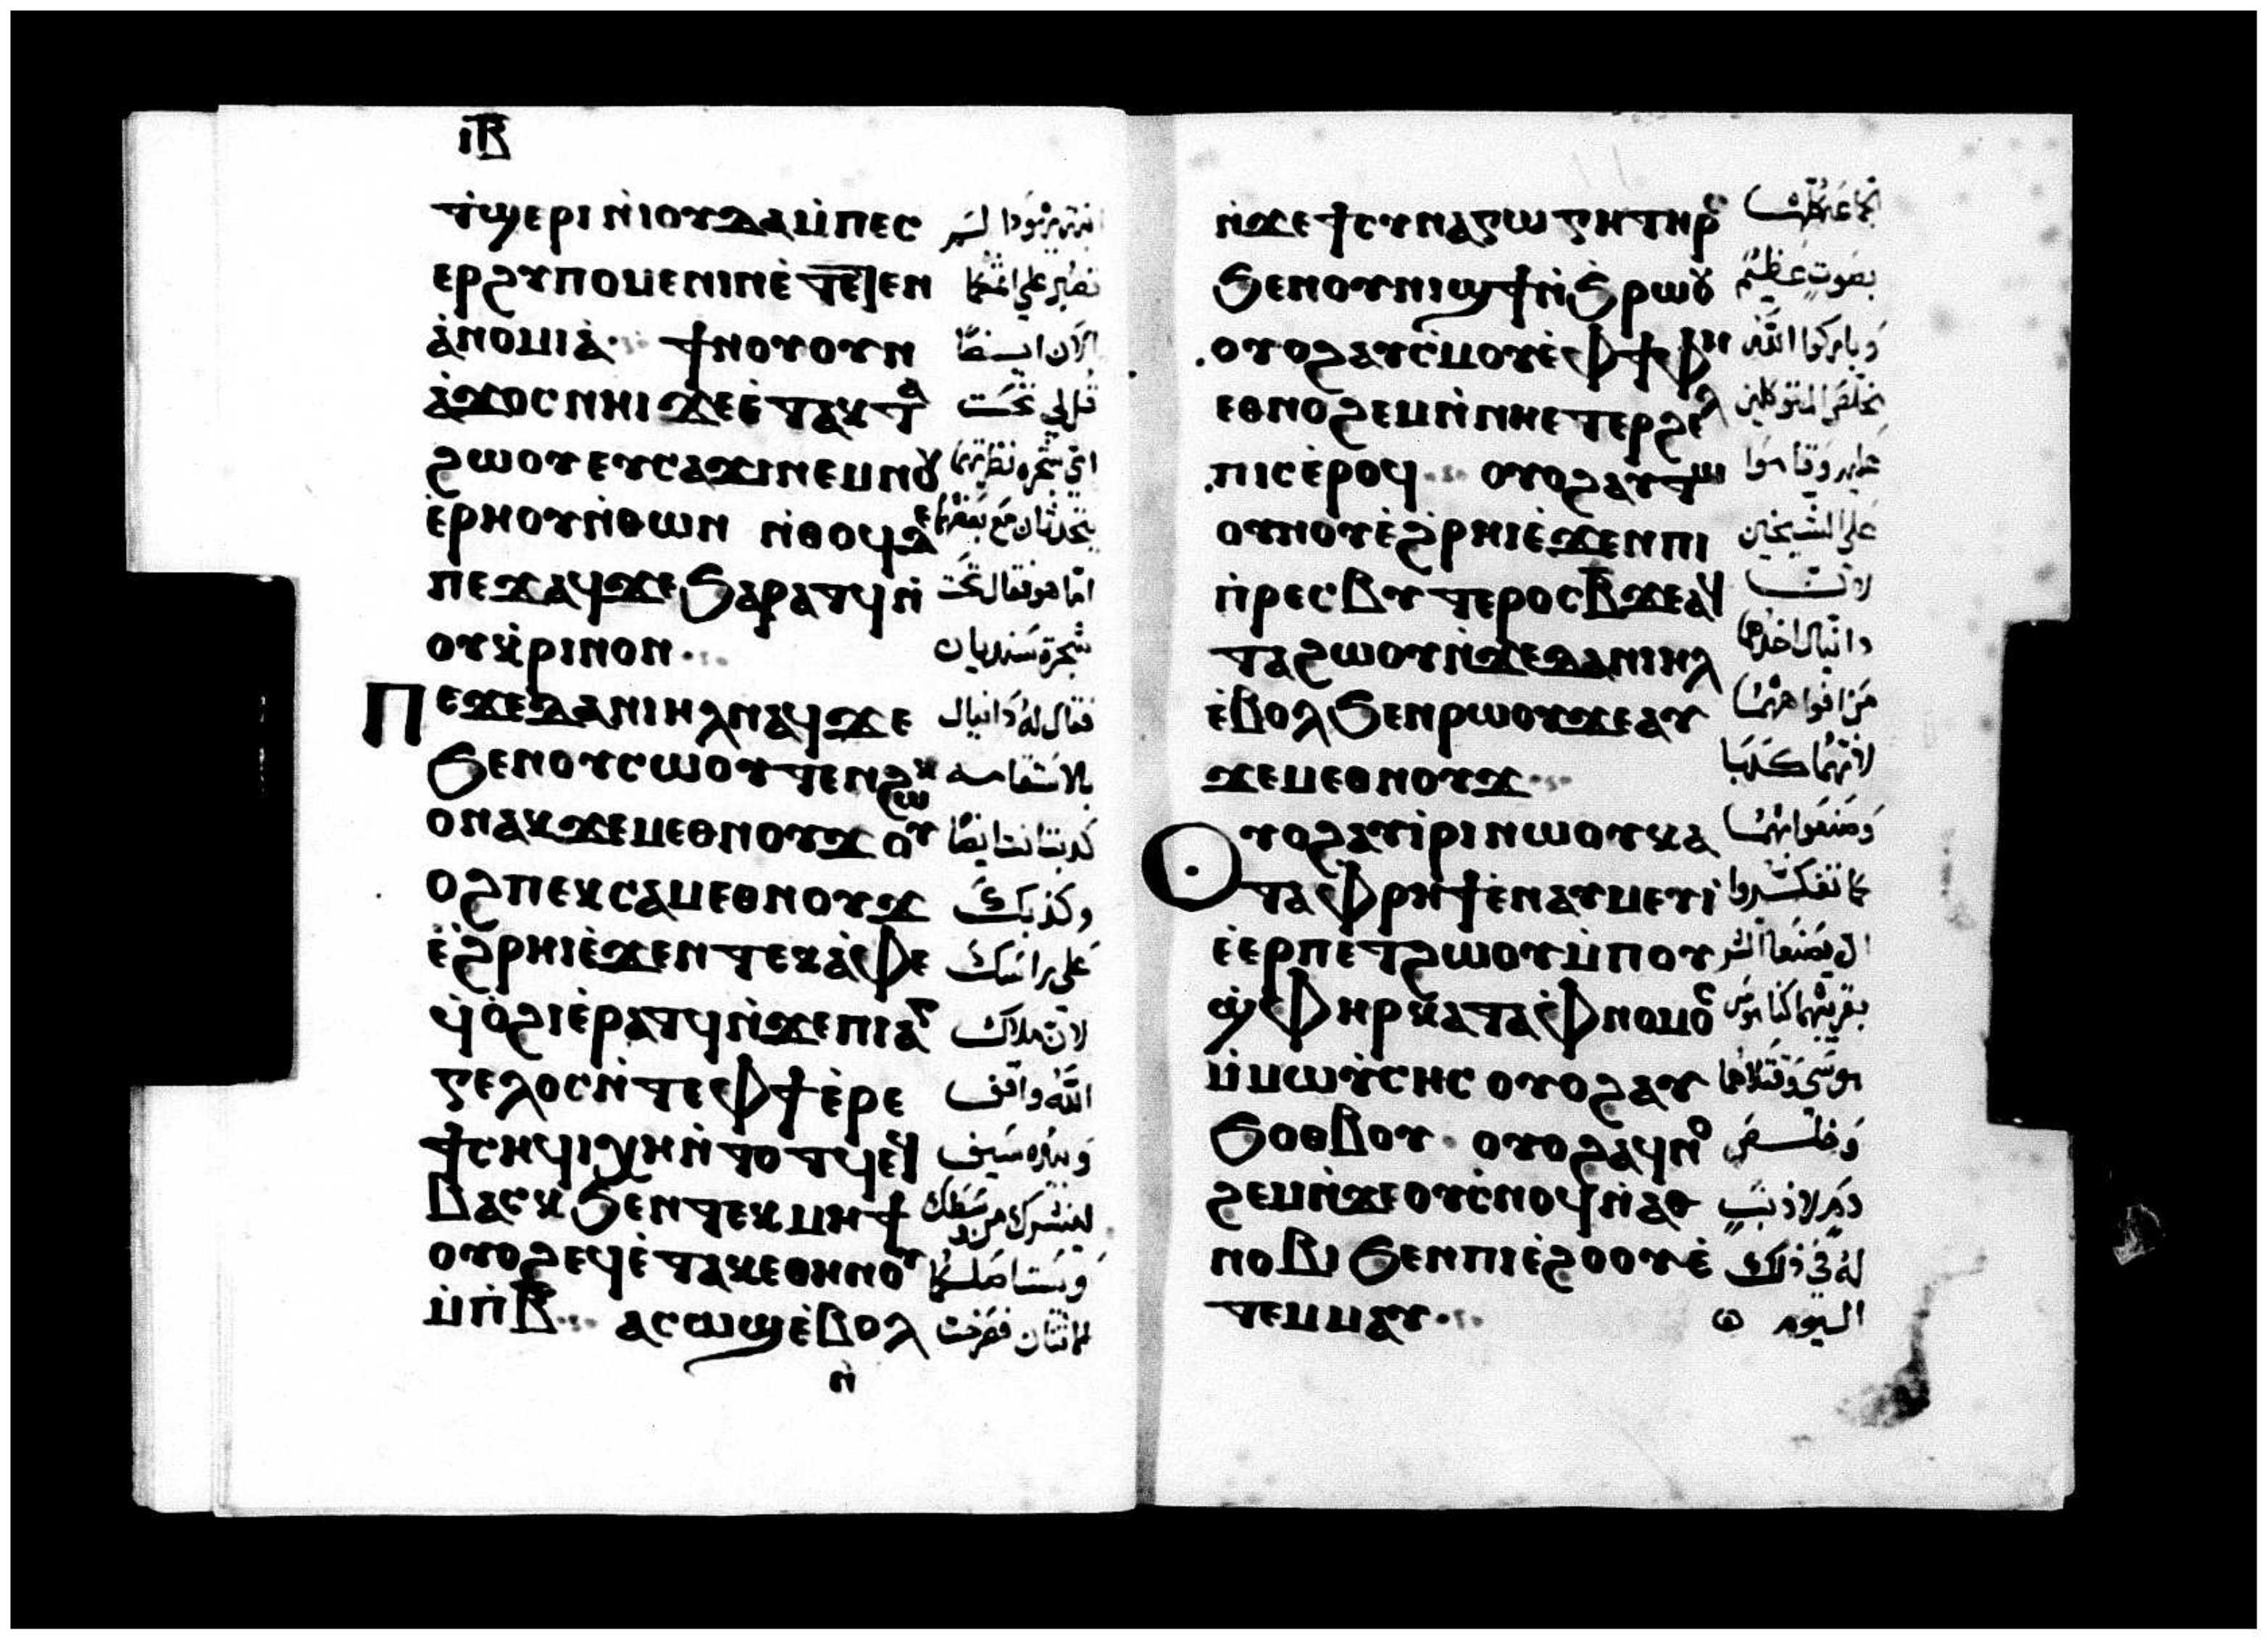 ⲓⲃ̅
ϯϣⲉⲣⲓ ⲛ̀ⲓⲟⲩⲇⲁ ⲙ̀ⲡⲉⲥ
ⲉⲣϩⲩⲡⲟⲙⲉⲛⲓⲛ ⲉ̀ⲧⲉⲧⲉⲛ
ⲁ̀ⲛⲟⲙⲓⲁ̀· ϯⲛⲟⲩ ⲟⲩⲛ
ⲁ̀ϫⲟⲥ ⲛⲏⲓ ϫⲉ ⲉ̀ⲧⲁⲕⲧⲁ
ϩⲱⲟⲩ ⲉⲩⲥⲁϫⲓ ⲛⲉⲙ ⲛⲟⲩ
ⲉ̀ⲣⲏⲟⲩ ⲛ̀ⲑⲱⲛ ⲛ̀ⲑⲟϥ ⲇⲉ
ⲡⲉϫⲁϥ ϫⲉ ϧⲁⲣⲁⲧϥ ⲛ̀
ⲟⲩⲭ̀ⲣⲓⲛⲟⲛ
شجرة سنديان
Ⲡⲉϫⲉ ⲇⲁⲛⲓⲏⲗ ⲛⲁϥ ϫⲉ فقال له دانيال
ϧⲉⲛ ⲟⲩⲥⲱⲟⲩⲧⲉⲛ ϩⲱⲕ بالاستقامه
ⲟⲛ ⲁⲕϫⲉⲙⲉⲑⲛⲟⲩϫ ⲟⲩ كدبت انت ايضا
ⲟϩ ⲡⲉⲕⲥⲁⲙⲉⲑⲛⲟⲩϫ وكذبك
ⲉ̀ϩ̀ⲣⲏⲓ ⲉ̀ϫⲉⲛ ⲧⲉⲕⲁ̀ⲫⲉ على راسك
ϥ̀ⲟ̀ϩⲓ ⲉ̀ⲣⲁⲧϥ ⲛ̀ϫⲉ ⲡⲓⲁⲅ لان ملاك
ⲅⲉⲗⲟⲥ ⲛ̀ⲧⲉ ⲫϯ ⲉ̀ⲣⲉ الله واقف
ϯⲥⲏϥⲓ ϣⲏ ⲛ̀ⲧⲟⲧϥ ⲉϥ وبيده سيف
ⲃⲁⲥⲕ ϧⲉⲛ ⲧⲉⲕⲙⲏϯ لينشرك من وسطك
ⲟⲩⲟϩ ⲉϥⲉ̀ⲧⲁⲕⲉ ⲑⲏⲛⲟⲩ ويستاصلكما
ⲙ̀ⲡ̀ⲃ̅ ⲁⲥⲱϣ ⲉ̀ⲃⲟⲗ فصرخت
ⲛ̀
ⲛ̀ϫⲉ ϯⲥⲩⲛⲁⲅⲱⲅⲏ ⲧⲏⲣⲥ
ϧⲉⲛ ⲟⲩⲛⲓϣϯ ⲛ̀ϧ̀ⲣⲱⲟⲩ بصوت عظيم
ⲟⲩⲟϩ ⲁⲩⲥ̀ⲙⲟⲩ ⲉ̀ⲫϯ ⲫⲏ وباركوا الله
ⲉⲑⲛⲟϩⲉⲙ ⲛ̀ⲛⲏⲉⲧⲉⲣϩⲉⲗ مخلص المتوكلين
ⲡⲓⲥ ⲉ̀ⲣⲟϥ ⲟⲩⲟϩ ⲁⲩⲧⲱ عليه وقاموا
ⲟⲩⲛⲟⲩ ⲉ̀ϩ̀ⲣⲏⲓ ⲉ̀ϫⲉⲛ ⲡⲓ على الشيخين
ⲡ̀ⲣⲉⲥⲃⲩⲧⲉⲣⲟⲥ ⲃ̅ ϫⲉ ⲁϥ لان
ⲧⲁϩⲱⲟⲩ ⲛ̀ϫⲉ ⲇⲁⲛⲓⲏⲗ دانيال اخذهما
ⲉ̀ⲃⲟⲗ ϧⲉⲛ ⲣⲱⲟⲩ ϫⲉ ⲁⲩ من افواههما
ϫⲉⲙⲉⲑⲛⲟⲩϫ لانهما كذبا
Ⲟⲩⲟϩ ⲁⲩⲓ̀ⲣⲓ ⲛⲱⲟⲩ ⲕⲁ وصنعوا بهما
ⲧⲁ ⲫ̀ⲣⲏϯ ⲉ̀ⲛⲁⲩⲙⲉⲩⲓ كما تفكروا
ⲉ̀ⲉⲣⲡⲉⲧϩⲱⲟⲩ ⲙ̀ⲡⲟⲩ ان يصنعا الشر
ϣ̀ⲫⲏⲣ ⲕⲁⲧⲁ ⲫ̀ⲛⲟⲙⲟⲥ
ⲙ̀ⲙⲱⲩ̀ⲥⲏⲥ ⲟⲩⲟϩ ⲁⲩ موسى وقتلاهما
ϧⲟⲑⲃⲟⲩ· ⲟⲩⲟϩ ⲁϥⲛⲟ وخلص
ϩⲉⲙ ⲛ̀ϫⲉ ⲟⲩⲥ̀ⲛⲟϥ ⲛ̀ⲁⲑ دم لا ذنب
ⲛⲟⲃⲓ ϧⲉⲛ ⲡⲓⲉ̀ϩⲟⲟⲩ ⲉ̀ له في ذلك
ⲧⲉⲙⲙⲁⲩ اليوم